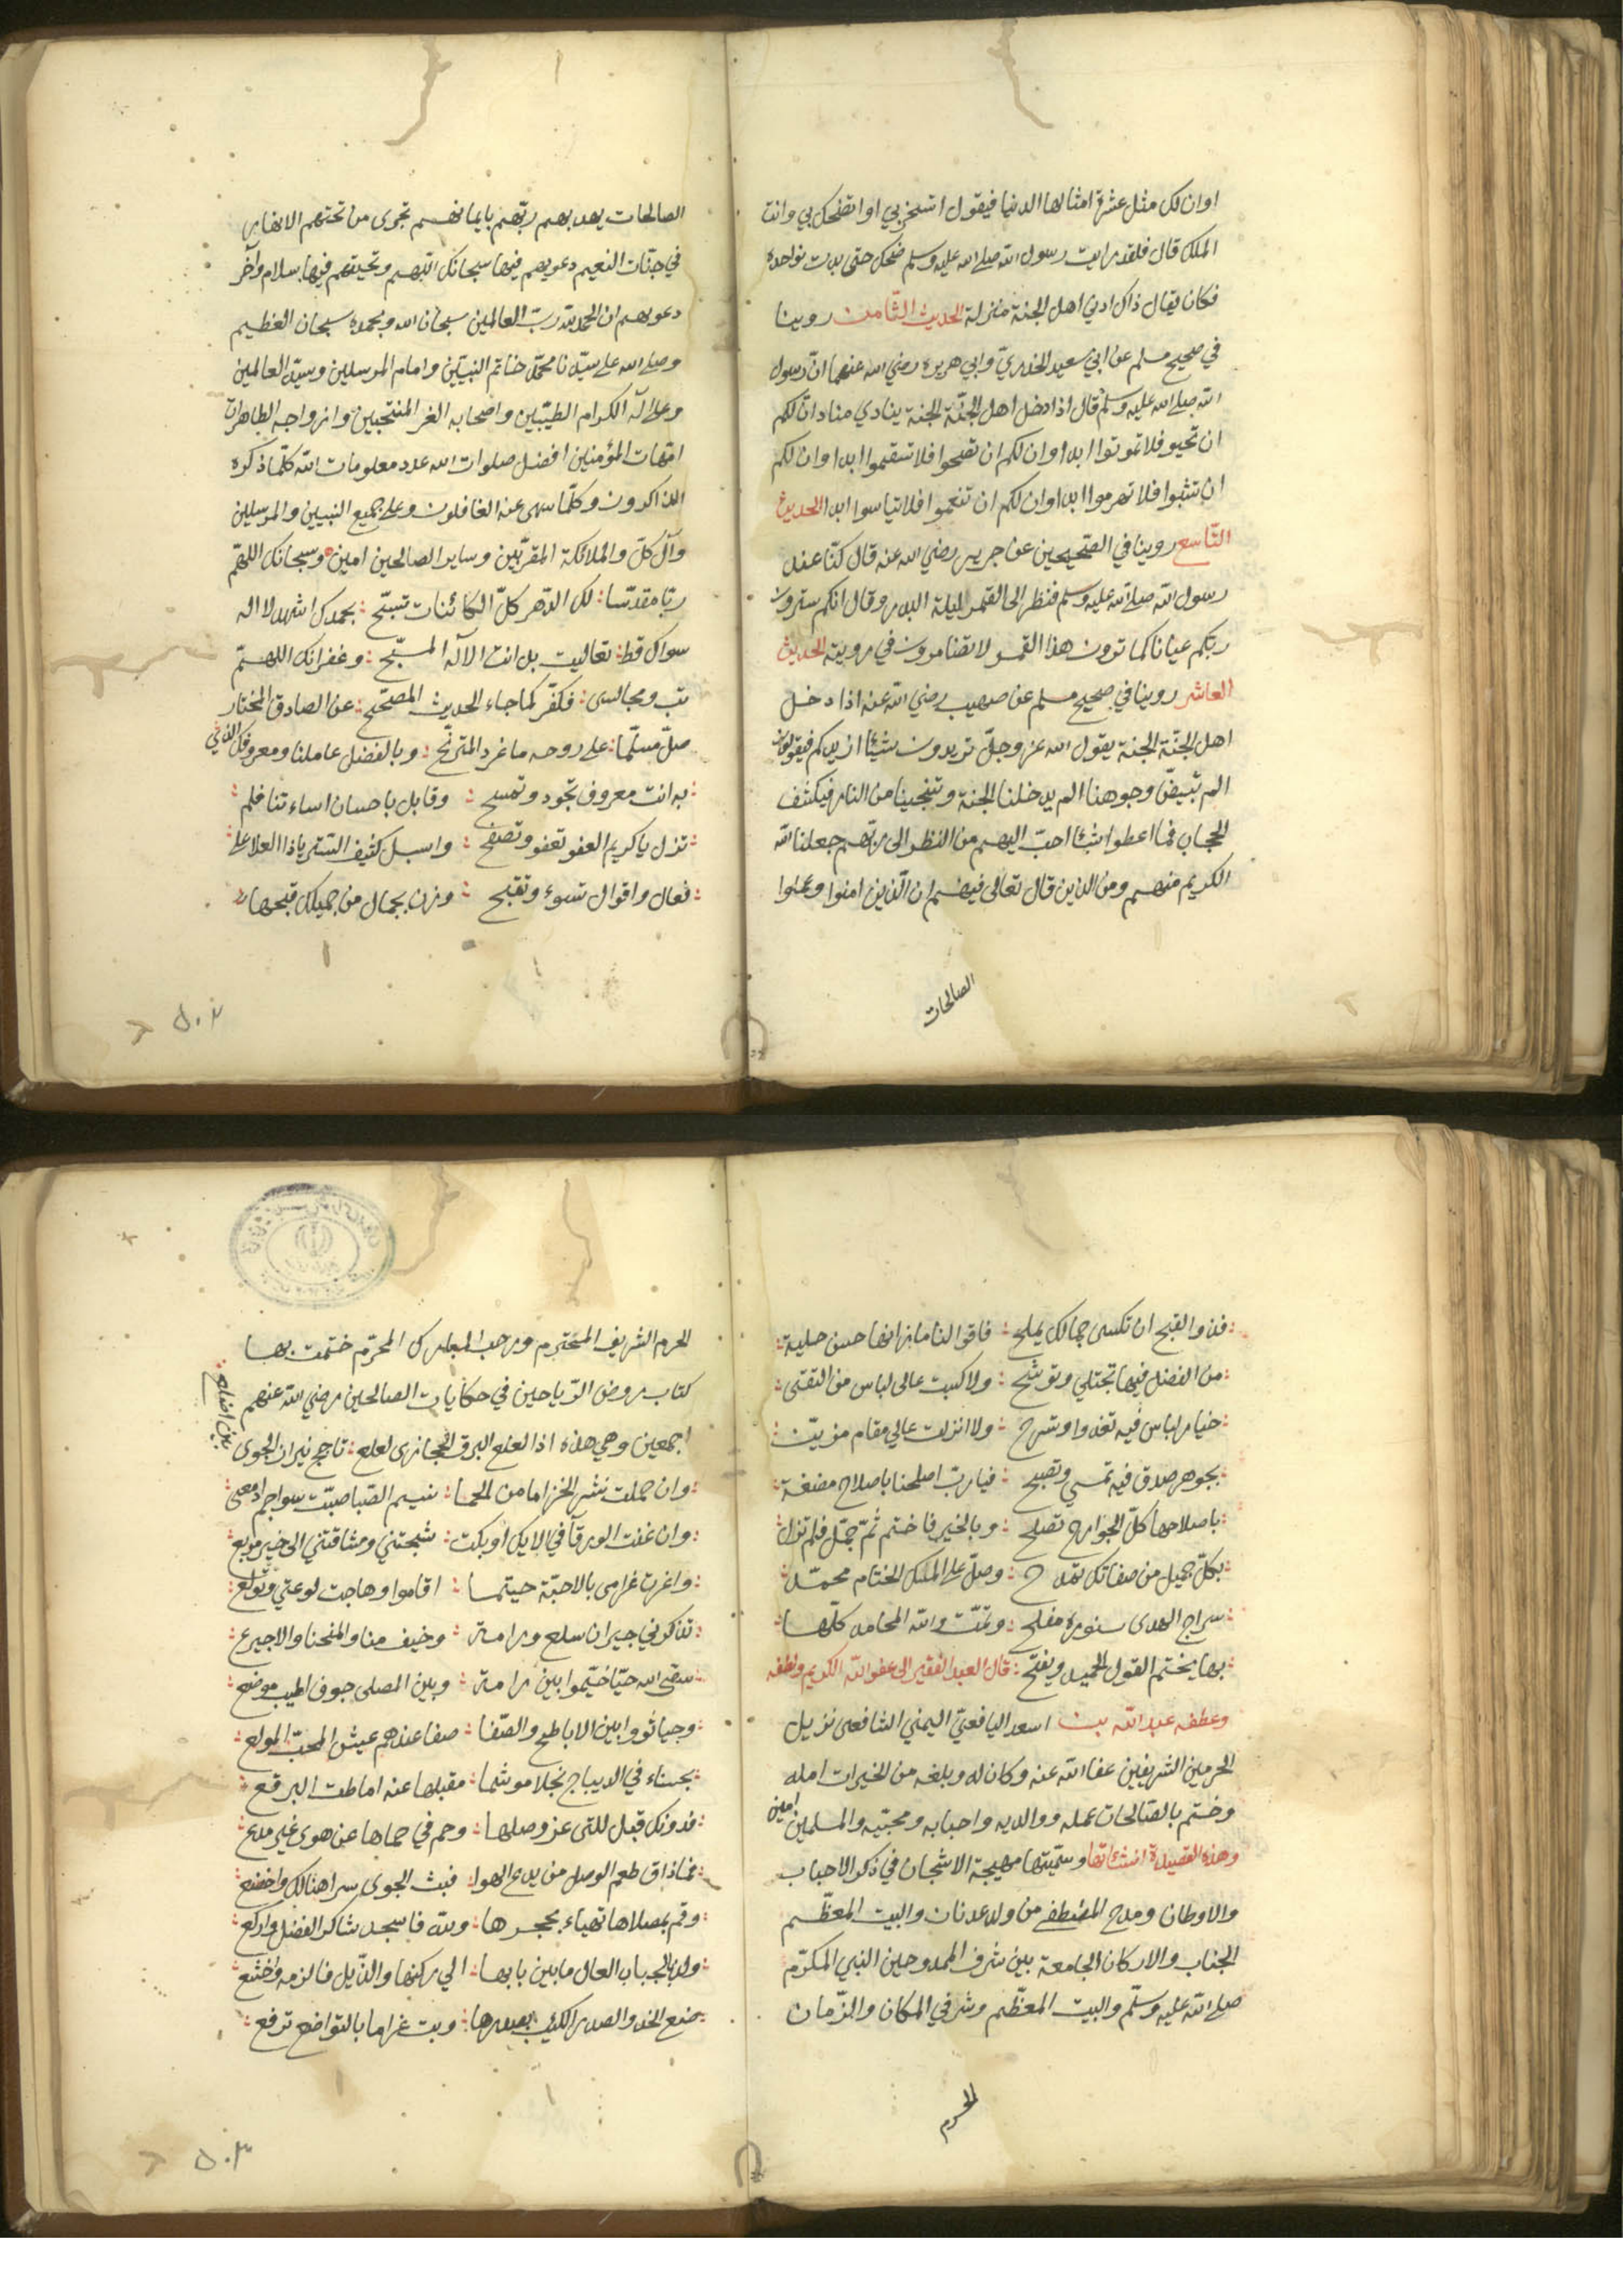 اوان لك مثل عشرة امثالها الدنيا فيقول اتسخر بي او اتضحك بي وانت
الملك قال فلقد رايت رسول الله صلى الله عليه وسلم ضحك حتى بدت نواجده
فكان يقال ذاك ادني اهل الجنة منزلة الحديث الثّامن روينا
في صحيح مسلم عن ابي سعيد الخدريّ وابي هريرة رضي الله عنهما انّ رسول
الله صلى الله عليه وسلم قال اذا دخل اهل الجنّة الجنة ينادي مناد انّ لكم
ان تحيو فلا تموتوا ابدا وان لكم ان تصحوا فلا تسقموا ابدا وان لكم
ان تشبوا فلا تهرموا ابدا وان لكم ان تنعموا فلا تياسوا ابدا الحديث
التّاسع روينا في الصّحيحين عن جرير رضي الله عنه قال كنّا عند
رسول الله صلى الله عليه وسلم فنظر الى القمر ليلة البدر وقال انكم سترون
ربّكم عيانا كما ترون هذا القمر لا تضامرون في رويته الحديث
العاشر روينا في صحيح مسلم عن صهيب رضي الله عنه اذا دخل
اهل الجنّة الجنة يقول الله عز وجلّ تريدون شيئا ازيدكم فيقولون
الم تبيضّ وجوهنا الم يدخلنا الجنة وتنجينا من النار فيكشف
الحجاب فما اعطوا شيئا احبّ اليهم من النظر الى ربهم جعلنا الله
الكريم منهم ومن الذين قال تعالى فيهم ان الّذين امنوا وعملوا
الصالحات
الصالحات يهديهم ربّهم بايمانهم تجرى من تحتهم الانهار
في جنّات النعيم دعويهم فيها سبحانك اللهم وتحيتهم فيها سلام وآخر
دعويهم ان الحمد لله ربّ العالمين سبحان الله وبحمده سبحان العظيم
وصلى الله على سيّدنا محمّد خاتم النبيّين وامام المرسلين وسيّد العالمين
وعلى اله الكرام الطيّبين واصحابه الغر المنتجبين وازواجه الطاهرات
امّهات المؤمنين افضل صلوات الله عدد معلومات الله كلّما ذكره
الذاكرون وكلّما سهى عنه الغافلون وعلى جميع النبيين والمرسلين
وآل كلّ والملائكة المقرّبين وساير الصالحين امين وسبحانك اللّهمّ
ربّا مقدّسا : لك الدّهر كلّ الكائنات تسبّح : بحمدك اشهد لا اله
سواك قط : تعاليت بل انت الاله المسبّح : وغفرانك اللهمّ
تب ومجالسى : فكفّر كما جاء الحديث المصحّح : عن الصادق المختار
صلّ مسلّما : على روحه ما غرد المترنّح : وبالفضل عاملنا ومعروفك الذي
: به انت معروف تجود وتمسح : وقابل باحسان اساءتنا فلم :
: تزل يا كريم العفو تعفو وتصفح : واسبل كثيف الستر يا ذا العلا على
: فعال واقوال تسوء وتقبح : وزن بجمال من جميلك قبحها :
٥٠٢
: فذو القبح ان تكسى جمالك يملح : فاقوالنا ما زانها حسن حلية :
: من الفضل فيها تجتلي وتوشّح : ولا كسبت عالى لباس من التقى :
: خيار لباس فيه تغدوا وتسرح : ولا انزلت عالي مقام مزيّن :
: بجوهر صدق فيه تمسي وتصبح : فيارب اصلحنا باصلاح مضغة :
: باصلاحها كلّ الجوارح تصلح : وبالخير فاختم ثمّ جمّل فلم تزل :
: بكلّ جميل من صفاتك تمدح : وصلّ على المسك الختام محمّد :
: سراج الهدى بنوره مفلح : وتمّت ولله المحامد كلّها :
: بها يختم القول الحميد ويفتح : قال العبد الفقير الى عفو الله الكريم ولطفه
وعطفه عبد الله بن اسعد اليافعيّ اليمني الشافعي نزيل
الحرمين الشريفين عفا الله عنه وكان له وبلغه من الخيرات امله
وختم بالصّالحات عمله ووالديه واحبابه ومحبّيه والمسلمين امين
وهذه القصيدة انشئاتها وسمّيتها مهيجة الاشجان في ذكر الاحباب
والاوطان ومدح المصطفى من ولد عدنان والبيت المعظّم
الجناب والاركان الجامعة بين شرف الممدوحين النبي المكرّم
صلى الله عليه وسلّم والبيت المعظّم وشرفي المكان والزّمان
الحرم
الحرم الشريف المحترم ورجب المبارك المحرّم ختمت بها
كتاب روض الرّياحين في حكايات الصالحين رضي الله عنهم
اجمعين وهي هذه اذا لعلع البرق الحجازى لعلع : تاجج نيران الجوى
بين اضلع :
: وان حملت نشر الخزاما من الحما : نسيم الصّبا صبّت سواجم ادمعى
: وان غنت الورقآ في الايك او بكت : شجتني ومشاقتني الى خير مربع :
: واغرت غرامى بالاحبّة حيثما : اقاموا وهاجت لوعتي وتولّع :
: تذكرني جيران سلع ورامة : وخيف منا والمنحنا والاجيرع :
: سقى الله حيّا خيّموا بين رامة : وبين المصلى جوف اطيب موضع :
: وحيا ثووا بين الاباطح والصّفا : صفا عندهم عيش المحبّ المولع :
: بحسناء في الديباج نجلا موشما : مقبلها عنه اماطت البرقع :
: فدونك قبل للتى عز وصلها : وحم في حماها عن هوى غير مدع :
: فما ذاق طعم الوصل من يدع الهوا : فبث الجوى سرا هنالك واخضع :
: وقم بمصلاها تهياء بحجرها : ولله فاسجد شاكر الفضل واركع :
: ولذ بالجناب العال ما بين بابها : الي ركنها والذّيل فالزمه واخشع :
: ضع الخد والصدر الكئيب بصدرها : وبت غراما بالتواضع ترفع :
٥٠٣